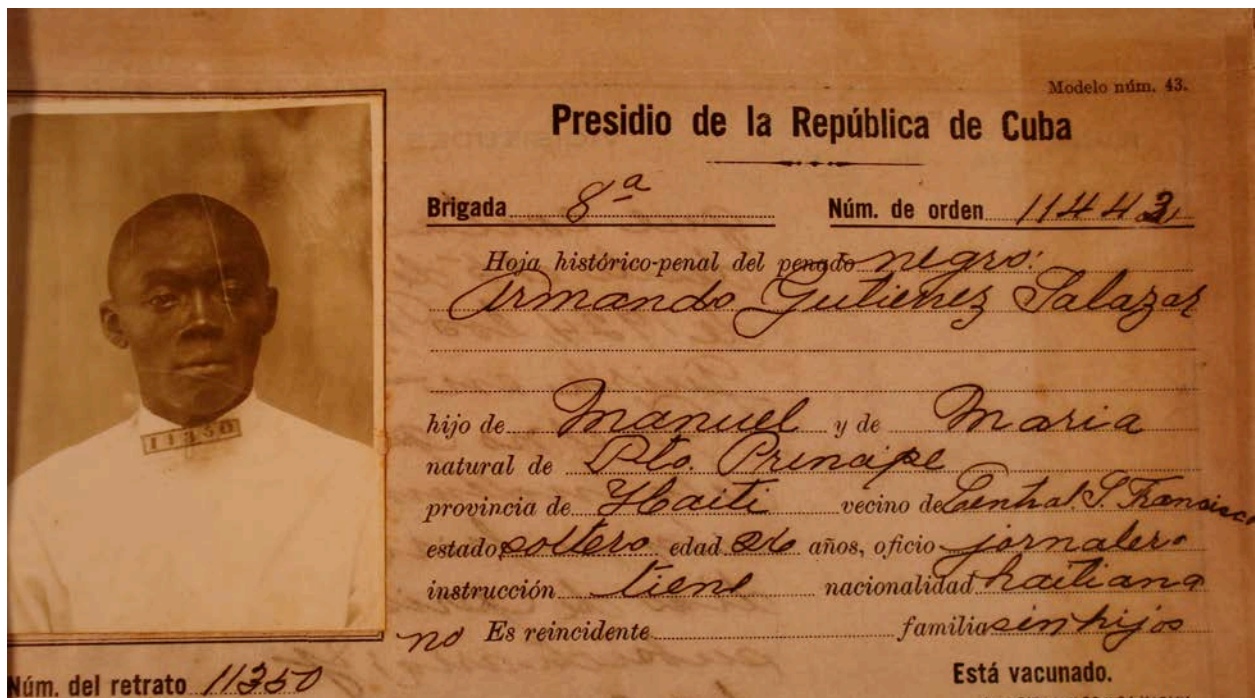 Modelo núm. 43.
Presidio de la República de Cuba
Brigada 8ª Núm. de orden 11443
Hoja histórico-penal del penado negro:
Armando Gutierrez Salazar
hijo de Manuel y de Maria
natural de Pto. Principe
provincia de Haiti vecino de Central S. Francisco
estado soltero edad 26 años, oficio jornalero
instrucción tiene nacionalidad haitiana
no Es reincidente familia sin hijos
11350
Núm. del retrato 11350 Está vacunado.